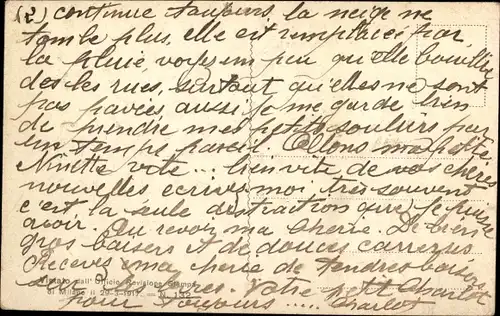 (2) continue toujours, la neige ne
tombe plus, elle est remplacée par
la pluie, voyez un peu quelle bouillie
des les rues, surtout qu'elles ne sont
pas pavées aussi je me garde bien
de prendre mes petits souliers par
un temps pareil. Allons ma petite
Ninette vite... bien vite de vos chères
nouvelles écrivez moi très souvent
c'est la seule distraction que je puisse
avoir. Au revoir ma chérie. De bien
gros baisers et de douces caresses
Recevez ma chérie de tendres baisers
sur vos Votre petit Charlot
pour toujours..... Charlot
Vistato dall'Ufficio Revisione Stampa
di Milano il 29-3-1917. — N. 132